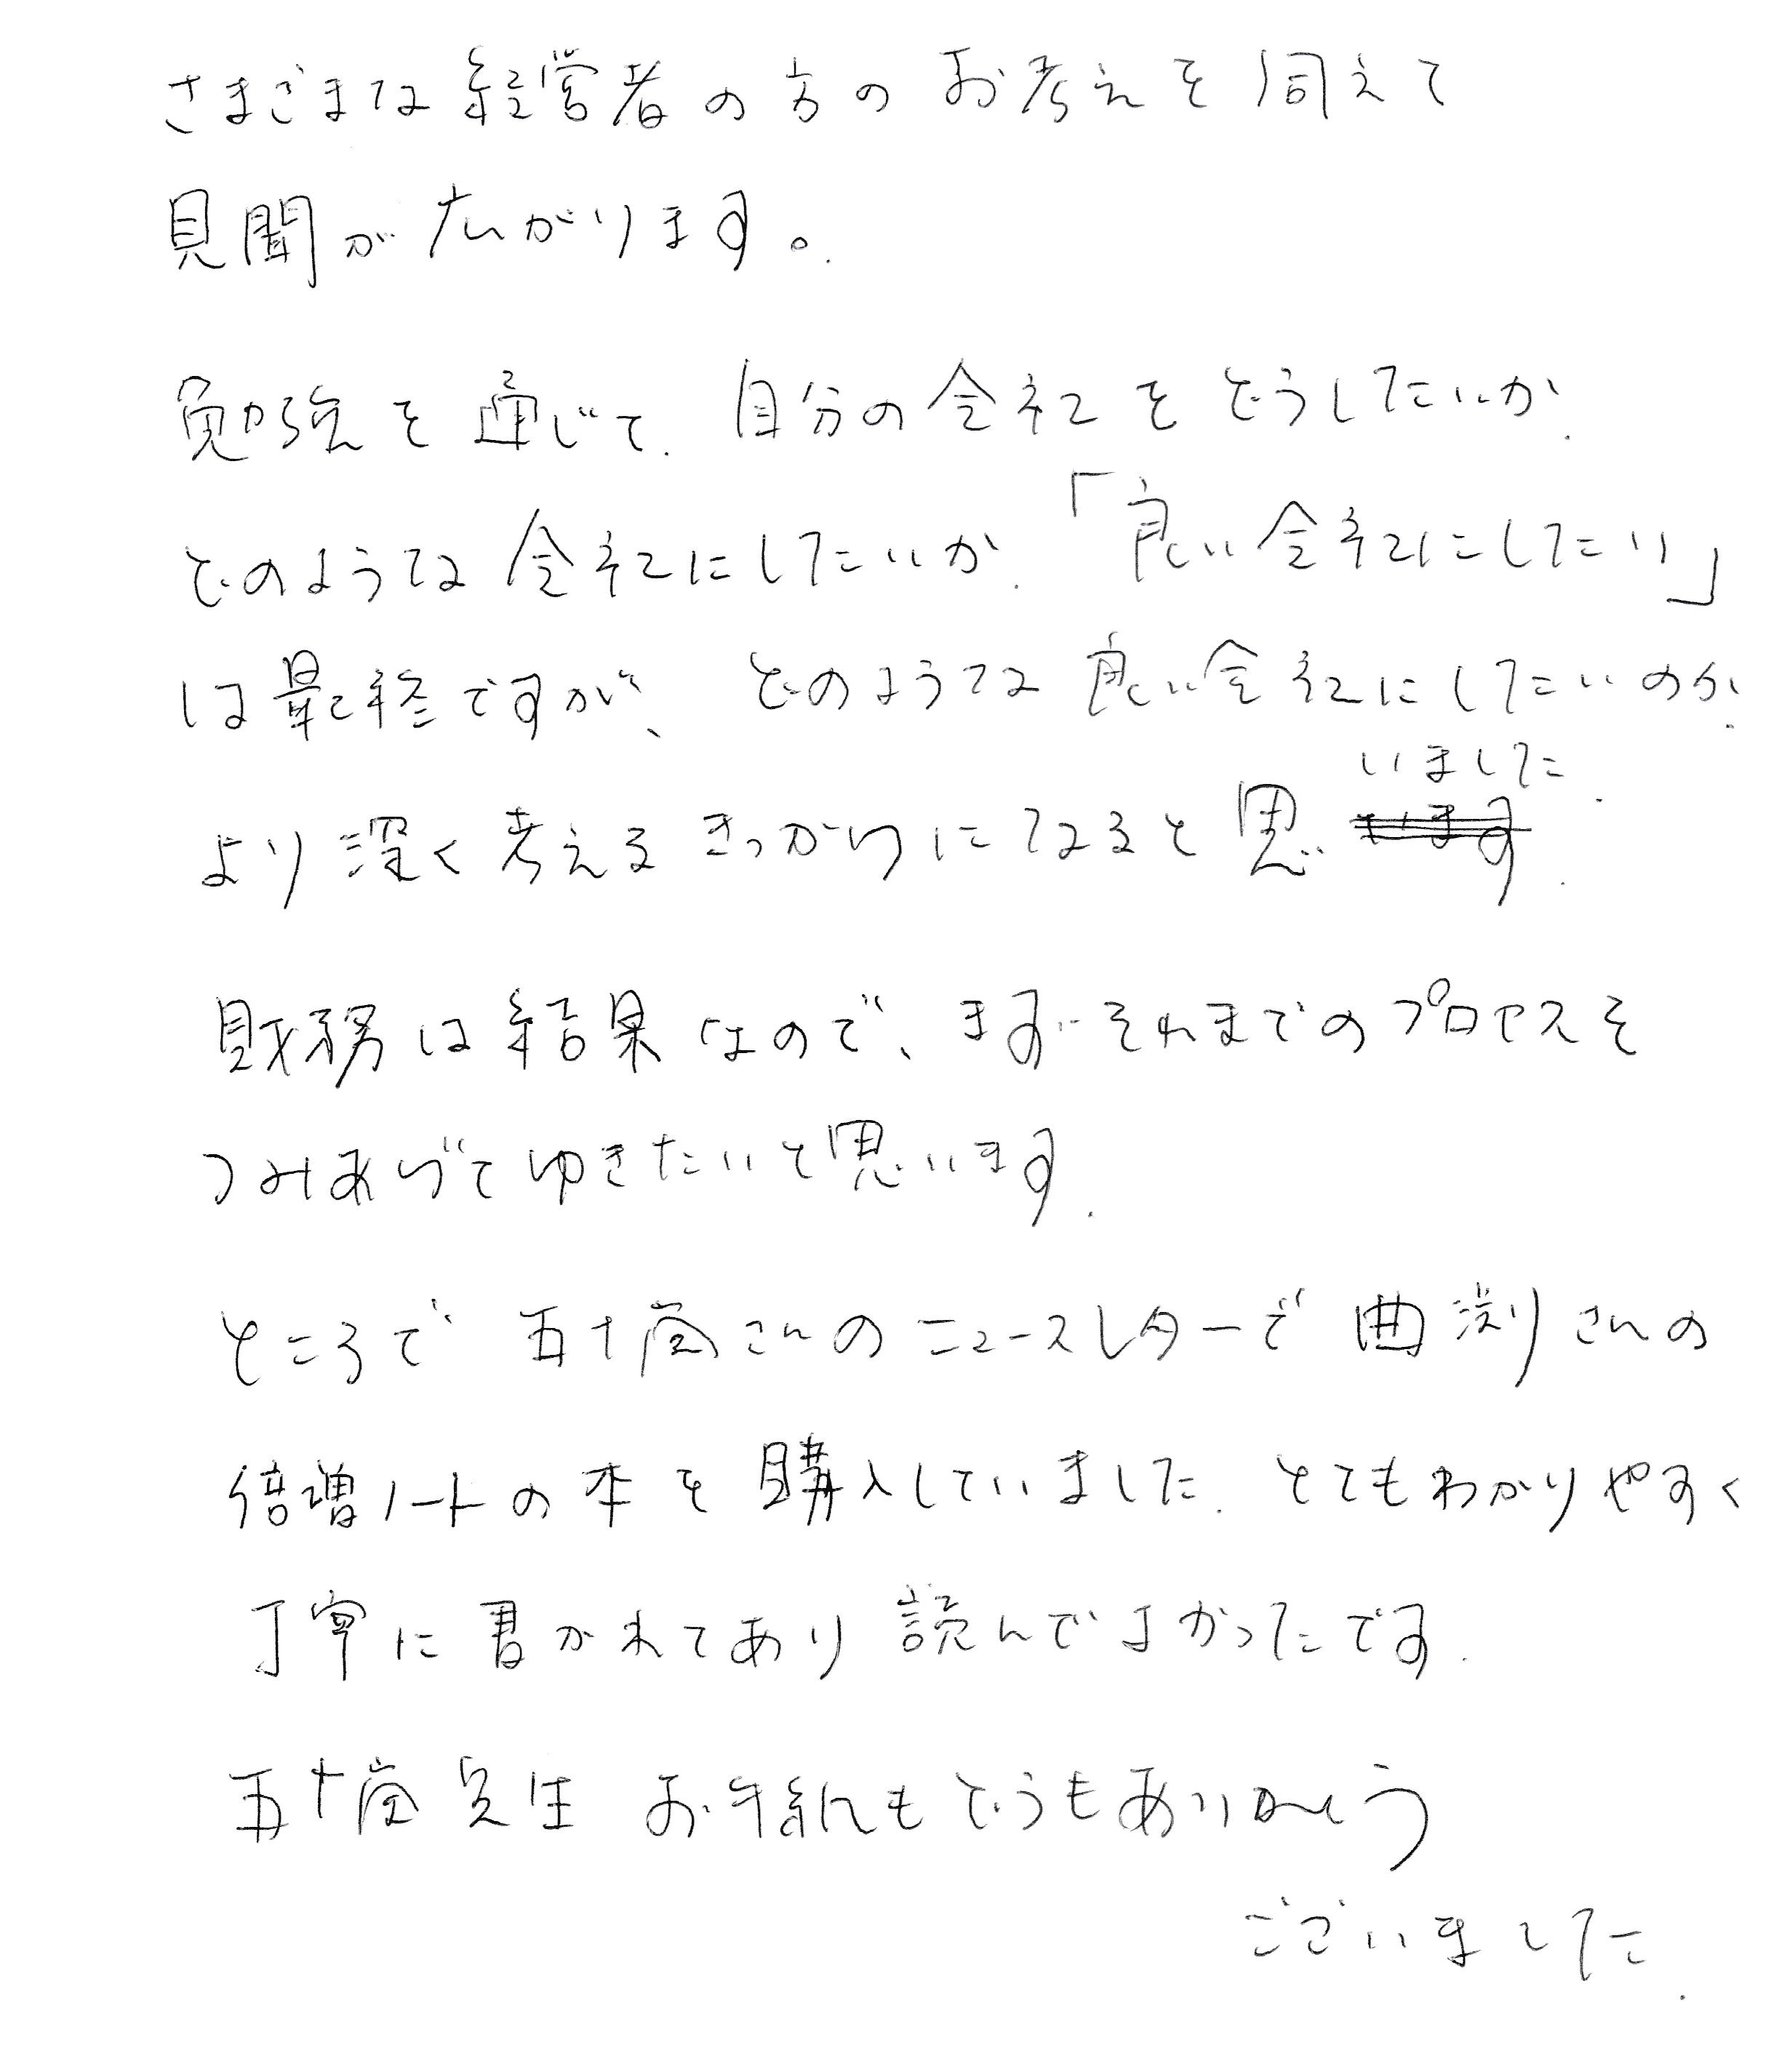 さまざまな経営者の方のお考えを伺えて
見聞が広がります。
勉強を通じて.自分の会社をどうしたいか.
どのような会社にしたいか.「良い会社にしたい」
は最終ですが、どのような良い会社にしたいのか.
より深く考えるきっかけになると思いました.
財務は結果なので、まずそれまでのプロセスを
つみあげてゆきたいと思います.
ところで 五十嵐さんのニュースレターで 曲渕さんの
倍増ノートの本を購入していました.とてもわかりやすく
丁寧に書かれてあり 読んでよかったです.
五十嵐先生 お手紙もどうもありがとう
ございました.